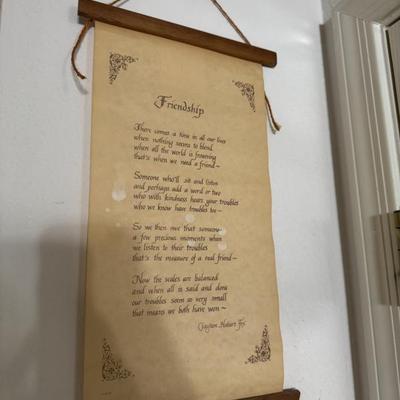 Friendship
There comes a time in all our lives
when nothing seems to blend,
when all the world is frowning
that's when we need a friend~
Someone who'll sit and listen
and perhaps add a word or two
who with kindness hears your troubles
who we know have troubles too~
So we then owe that someone
a few precious moments when
we listen to their troubles
that's the measure of a real friend~
Now the scales are balanced
and when all is said and done
our troubles seem so very small
that means we both have won~
Clayton Hobart Fox